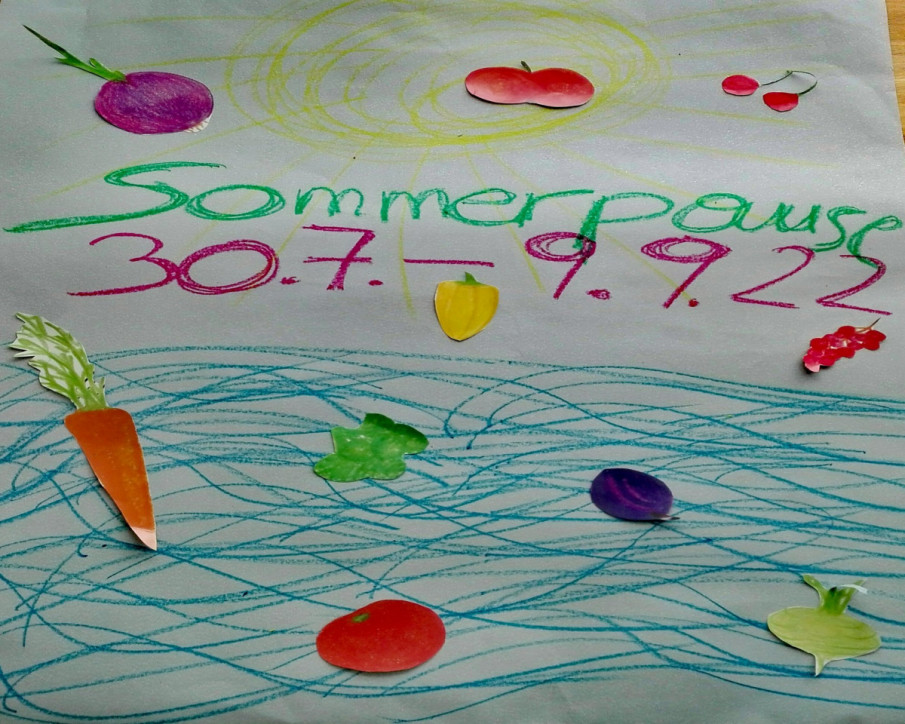 Sommerpause
30.7. – 9.9.22